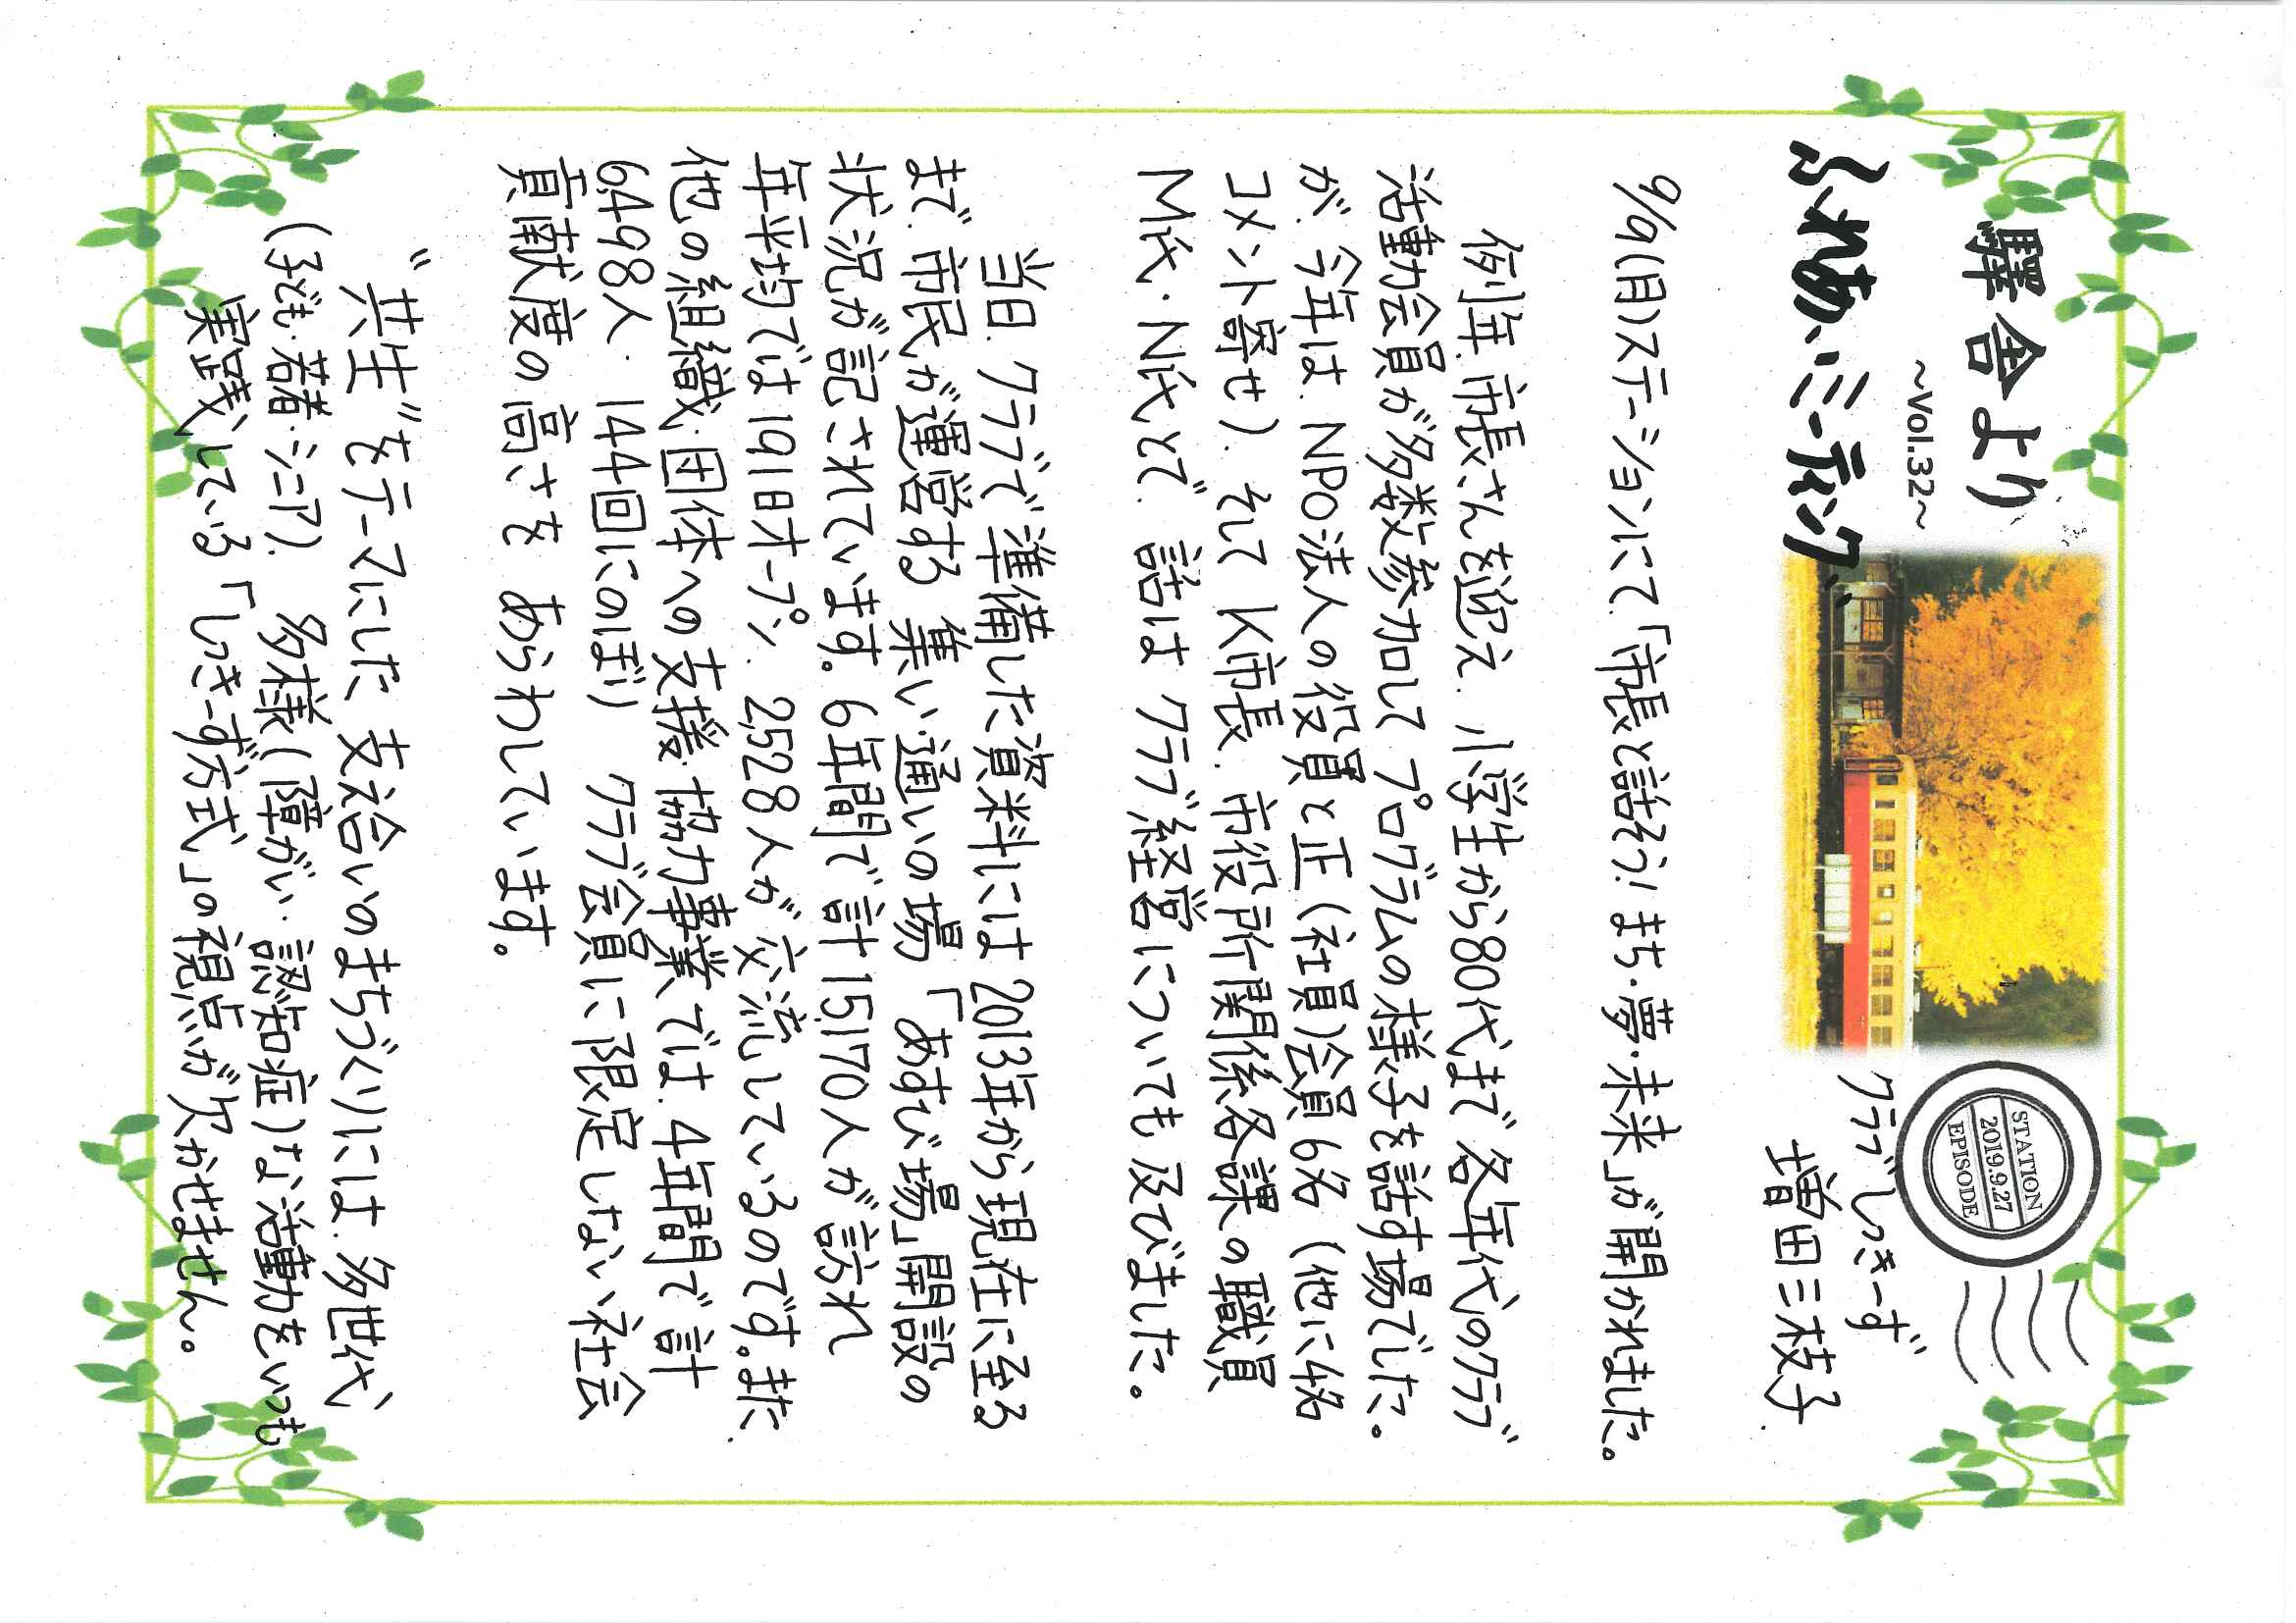 驛舎より
~Vol.32~
ふれあいミーティング
STATION
2019.9.27
EPISODE
クラブしっきーず
増田三枝子
9/9(月)ステーションにて「市長と話そう!まち・夢・未来」が開かれました。
例年、市長さんを迎え、小学生から80代まで各年代のクラブ
活動会員が多数参加してプログラムの様子を話す場でした。
が、今年は、NPO法人の役員と正(社員)会員6名(他に4名
コメント寄せ)、そしてK市長、市役所関係各課の職員
M氏・N氏とで、話はクラブ経営についても及びました。
当日、クラブで準備した資料には2013年から現在に至る
まで、市民が運営する集い・通いの場「あすび場」開設の
状況が記されています。6年間で計15,170人が訪れ
年平均では191日オープン、2,528人が交流しているのです。また、
他の組織・団体への支援・協力事業では、4年間で計
6,498人・144回にのぼり クラブ会員に限定しない社会
貢献度の高さを あらわしています。
"共生"をテーマにした 支え合いのまちづくりには、多世代
(子ども・若者・シニア)、多様(障がい・認知症)な活動をいつも
実践している「しっきーず方式」の視点が欠かせません。